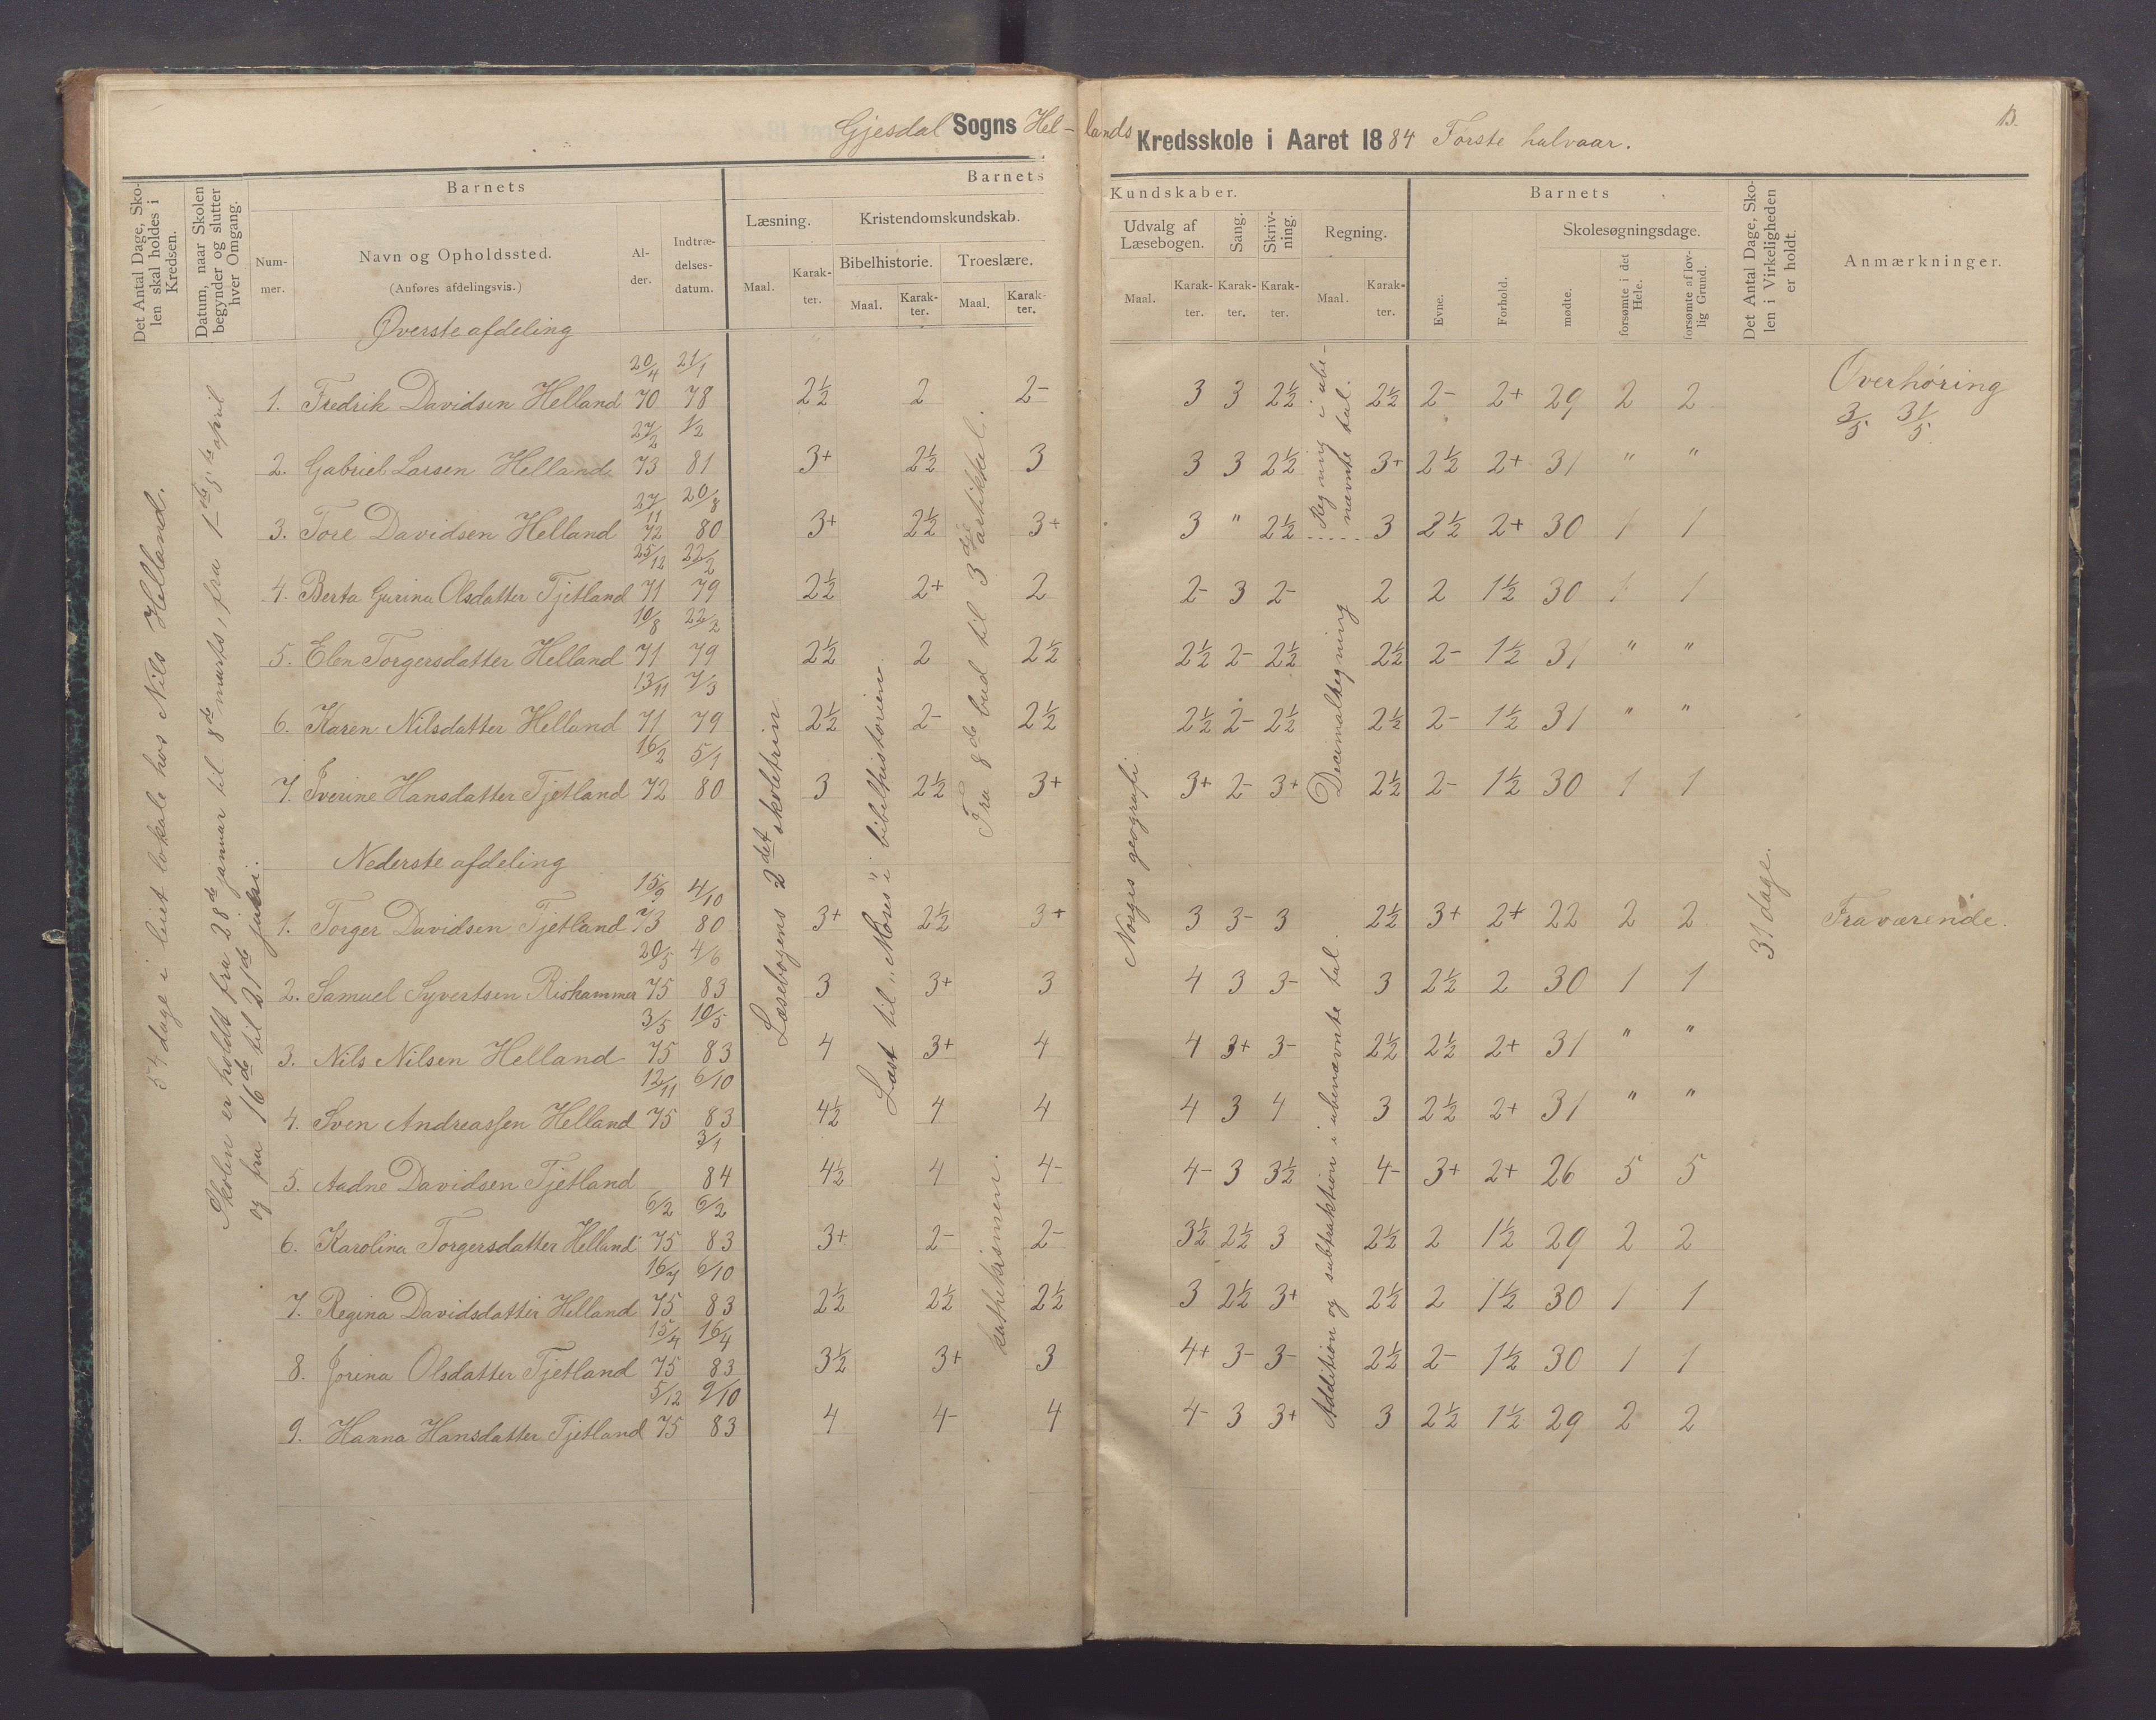 Gjesdal Sogns Hel-lands Kredsskole i Aaret 1884 Første halvaar.
13.
Det Antal Dage, Sko-
len skal holdes i
Kredsen.
Datum, naar Skolen
begynder og slutter
hver Omgang.
Barnets
Num-
mer.
Navn og Opholdssted.
(Anføres afdelingsvis.)
Al-
der.
Indtræ-
delses-
datum.
Barnets Kundskaber.
Læsning.
Maal. Karak-
ter.
Kristendomskundskab.
Bibelhistorie.
Maal. Karak-
ter.
Troeslære.
Maal. Karak-
ter.
Udvalg af
Læsebogen.
Maal. Karak-
ter.
Sang.
Karak-
ter.
Skriv-
ning.
Karak-
ter.
Regning.
Maal. Karak-
ter.
Barnets
Evne.
Forhold.
Skolesøgningsdage.
mødte.
forsømte i det
Hele.
forsømte af lov-
lig Grund.
Det Antal Dage, Sko-
len i Virkeligheden
er holdt.
Anmærkninger.
54 dage i leiet lokale hos Nils Helland.
Skolen er holdt fra 28de januar til 8de marts, fra 1ste til 5te april
og fra 16de til 21de juli.
Læsebogens 2det skoletrin
Læst til „Moses" i bibelhistorien.
Fra 8de bud til 3die artikkel.
kathekismen.
Norges geografi
Regning i ube-
nævnte tal.
Decimalregning
Addition og subtraktion i ubenævnte tal.
31 dage.
Øverste afdeling
1. Fredrik Davidsen Helland 20/4 70 21/1 78 2½ 2 2- 3 3 2½ 2½ 2- 2+ 29 2 2 Overhøring
3/5 31/5
2. Gabriel Larsen Helland 27/2 73 1/2 81 3+ 2½ 3 3 3 2½ 3+ 2½ 2+ 31 " "
3. Tore Davidsen Helland 27/11 72 20/8 80 3+ 2½ 3+ 3 " 2½ 3 2½ 2+ 30 1 1
4. Berta Gurina Olsdatter Tjetland 25/12 71 22/2 79 2½ 2+ 2 2- 3 2- 2 2 1½ 30 1 1
5. Elen Torgersdatter Helland 10/8 71 22/2 79 2½ 2 2½ 2½ 2- 2½ 2½ 2- 1½ 31 " "
6. Karen Nilsdatter Helland 13/11 71 7/3 79 2½ 2- 2½ 2½ 2- 2½ 2½ 2- 1½ 31 " "
7. Iverine Hansdatter Tjetland 16/2 72 5/1 80 3 2½ 3+ 3+ 2- 3+ 2½ 2- 1½ 30 1 1
Nederste afdeling
1. Torger Davidsen Tjetland 15/9 73 4/10 80 3+ 2½ 3+ 3 3- 3 2½ 3+ 2+ 22 2 2 Fraværende.
2. Samuel Syvertsen Riskammer 20/5 75 4/6 83 3 3+ 3 4 3 3- 3 2½ 2 30 1 1
3. Nils Nilsen Helland 3/5 75 10/5 83 4 3+ 4 4 3+ 3- 2½ 2½ 2+ 31 " "
4. Sven Andreassen Helland 12/11 75 6/10 83 4½ 4 4 4 3 4 3 2½ 2+ 31 " "
5. Aadne Davidsen Tjetland 3/1 84 4½ 4 4- 4- 3 3½ 4- 3+ 2+ 26 5 5
6. Karolina Torgersdatter Helland 6/2 75 6/2 83 3+ 2- 2- 3½ 2½ 3 2½ 2 1½ 29 2 2
7. Regina Davidsdatter Helland 16/7 75 6/10 83 2½ 2½ 2½ 3 2½ 3+ 2½ 2 1½ 30 1 1
8. Jorina Olsdatter Tjetland 15/4 75 16/4 83 3½ 3+ 3 4+ 3- 3- 2½ 2- 1½ 30 1 1
9. Hanna Hansdatter Tjetland 5/12 75 9/10 83 4 4- 4 4- 3 3+ 3 2½ 1½ 29 2 2